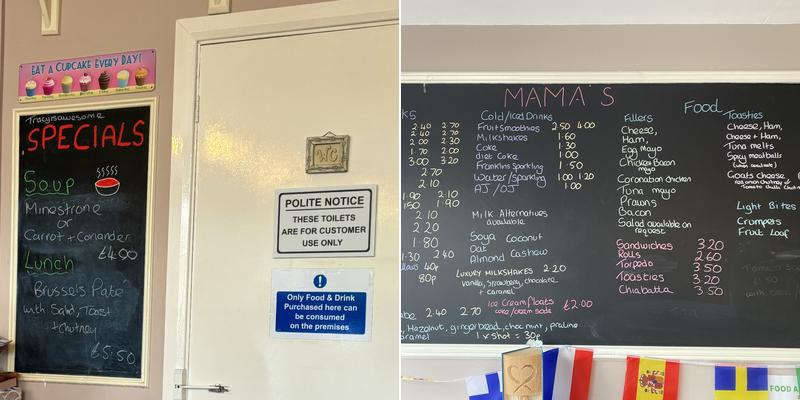 EAT A CUPCAKE EVERY DAY!
Tracyisawesome
SPECIALS
Soup
Minestrone
or
Carrot + Coriander
£4.00
Lunch
Brussels Pate
with Salad, Toast
+ chutney
£5.50
WC
POLITE NOTICE
THESE TOILETS
ARE FOR CUSTOMER
USE ONLY
Only Food & Drink
Purchased here can
be consumed
on the premises
MAMA'S
KS
2.40 2.70
2.40 2.70
2.00 2.30
1.70 2.00
3.00 3.20
2.70
2.10
1.90 2.10
1.50 1.90
2.10
2.20
1.80
1.30 2.40
40p
80p
2.40 2.70
Cold/Iced Drinks
Fruit smoothies 2.50 4.00
Milkshakes 1.60
Coke 1.30
diet Coke 1.00
Franklins Sparkling 1.50
Water/sparkling 1.00 1.20
AJ/OJ 1.00
Milk Alternatives
available
Soya Coconut
Oat
Almond Cashew
LUXURY MILKSHAKES 2.20
Vanilla, Strawberry, chocolate
+ caramel
Ice Cream floats £2.00
coke/cream soda
Hazelnut, gingerbread, choc mint, praline
aramel 1 x shot = 30p
Food
Fillers
Cheese,
Ham,
Egg Mayo
Chicken Bacon
mayo
Coronation chicken
Tuna mayo
Prawns
Bacon
Salad available on
request
Sandwiches 3.20
Rolls 2.60
Torpedo 3.50
Toasties 3.20
Chiabatta 3.50
Toasties
Cheese, Ham,
Cheese + Ham,
Tuna melts
Spicy meatballs
(when available)
Goats cheese
Light Bites
Crumpets
Fruit Loaf
FOOD A